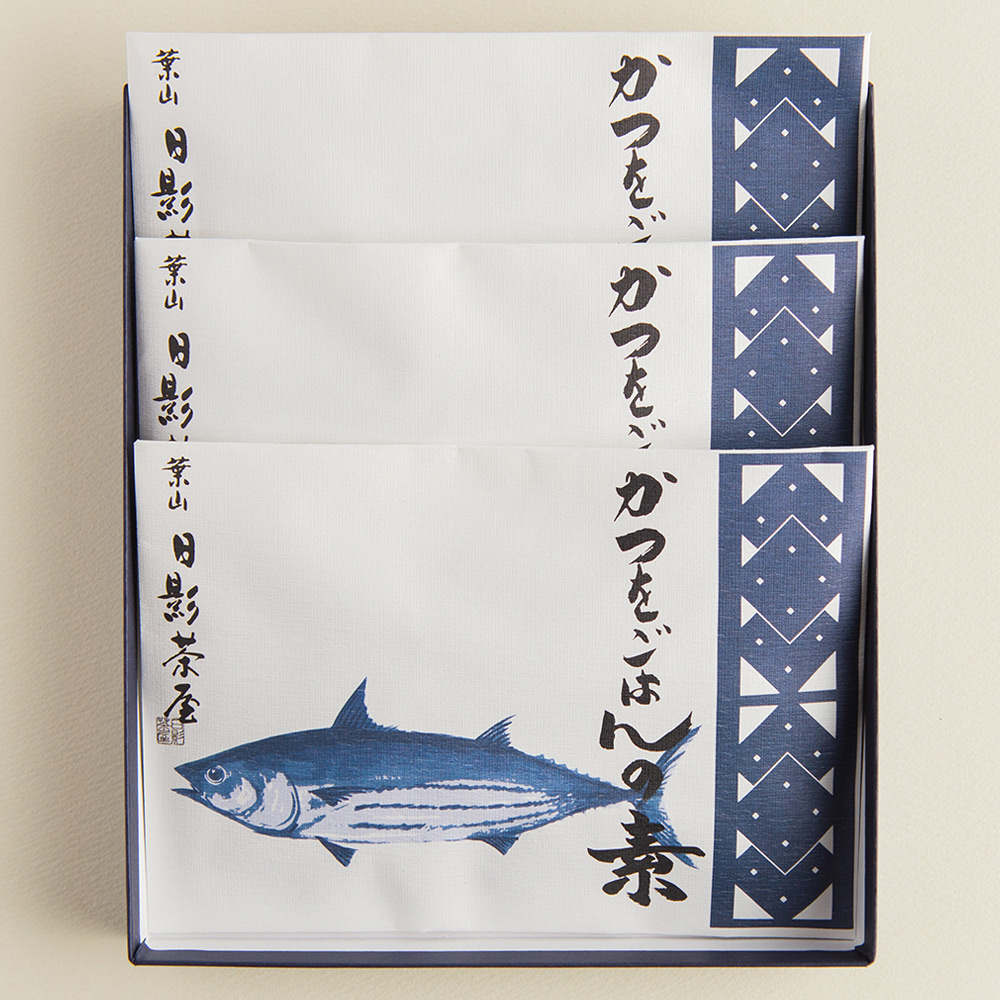 かつをご
葉山 日影
かつをご
葉山 日影
かつをごはんの素
葉山 日影茶屋